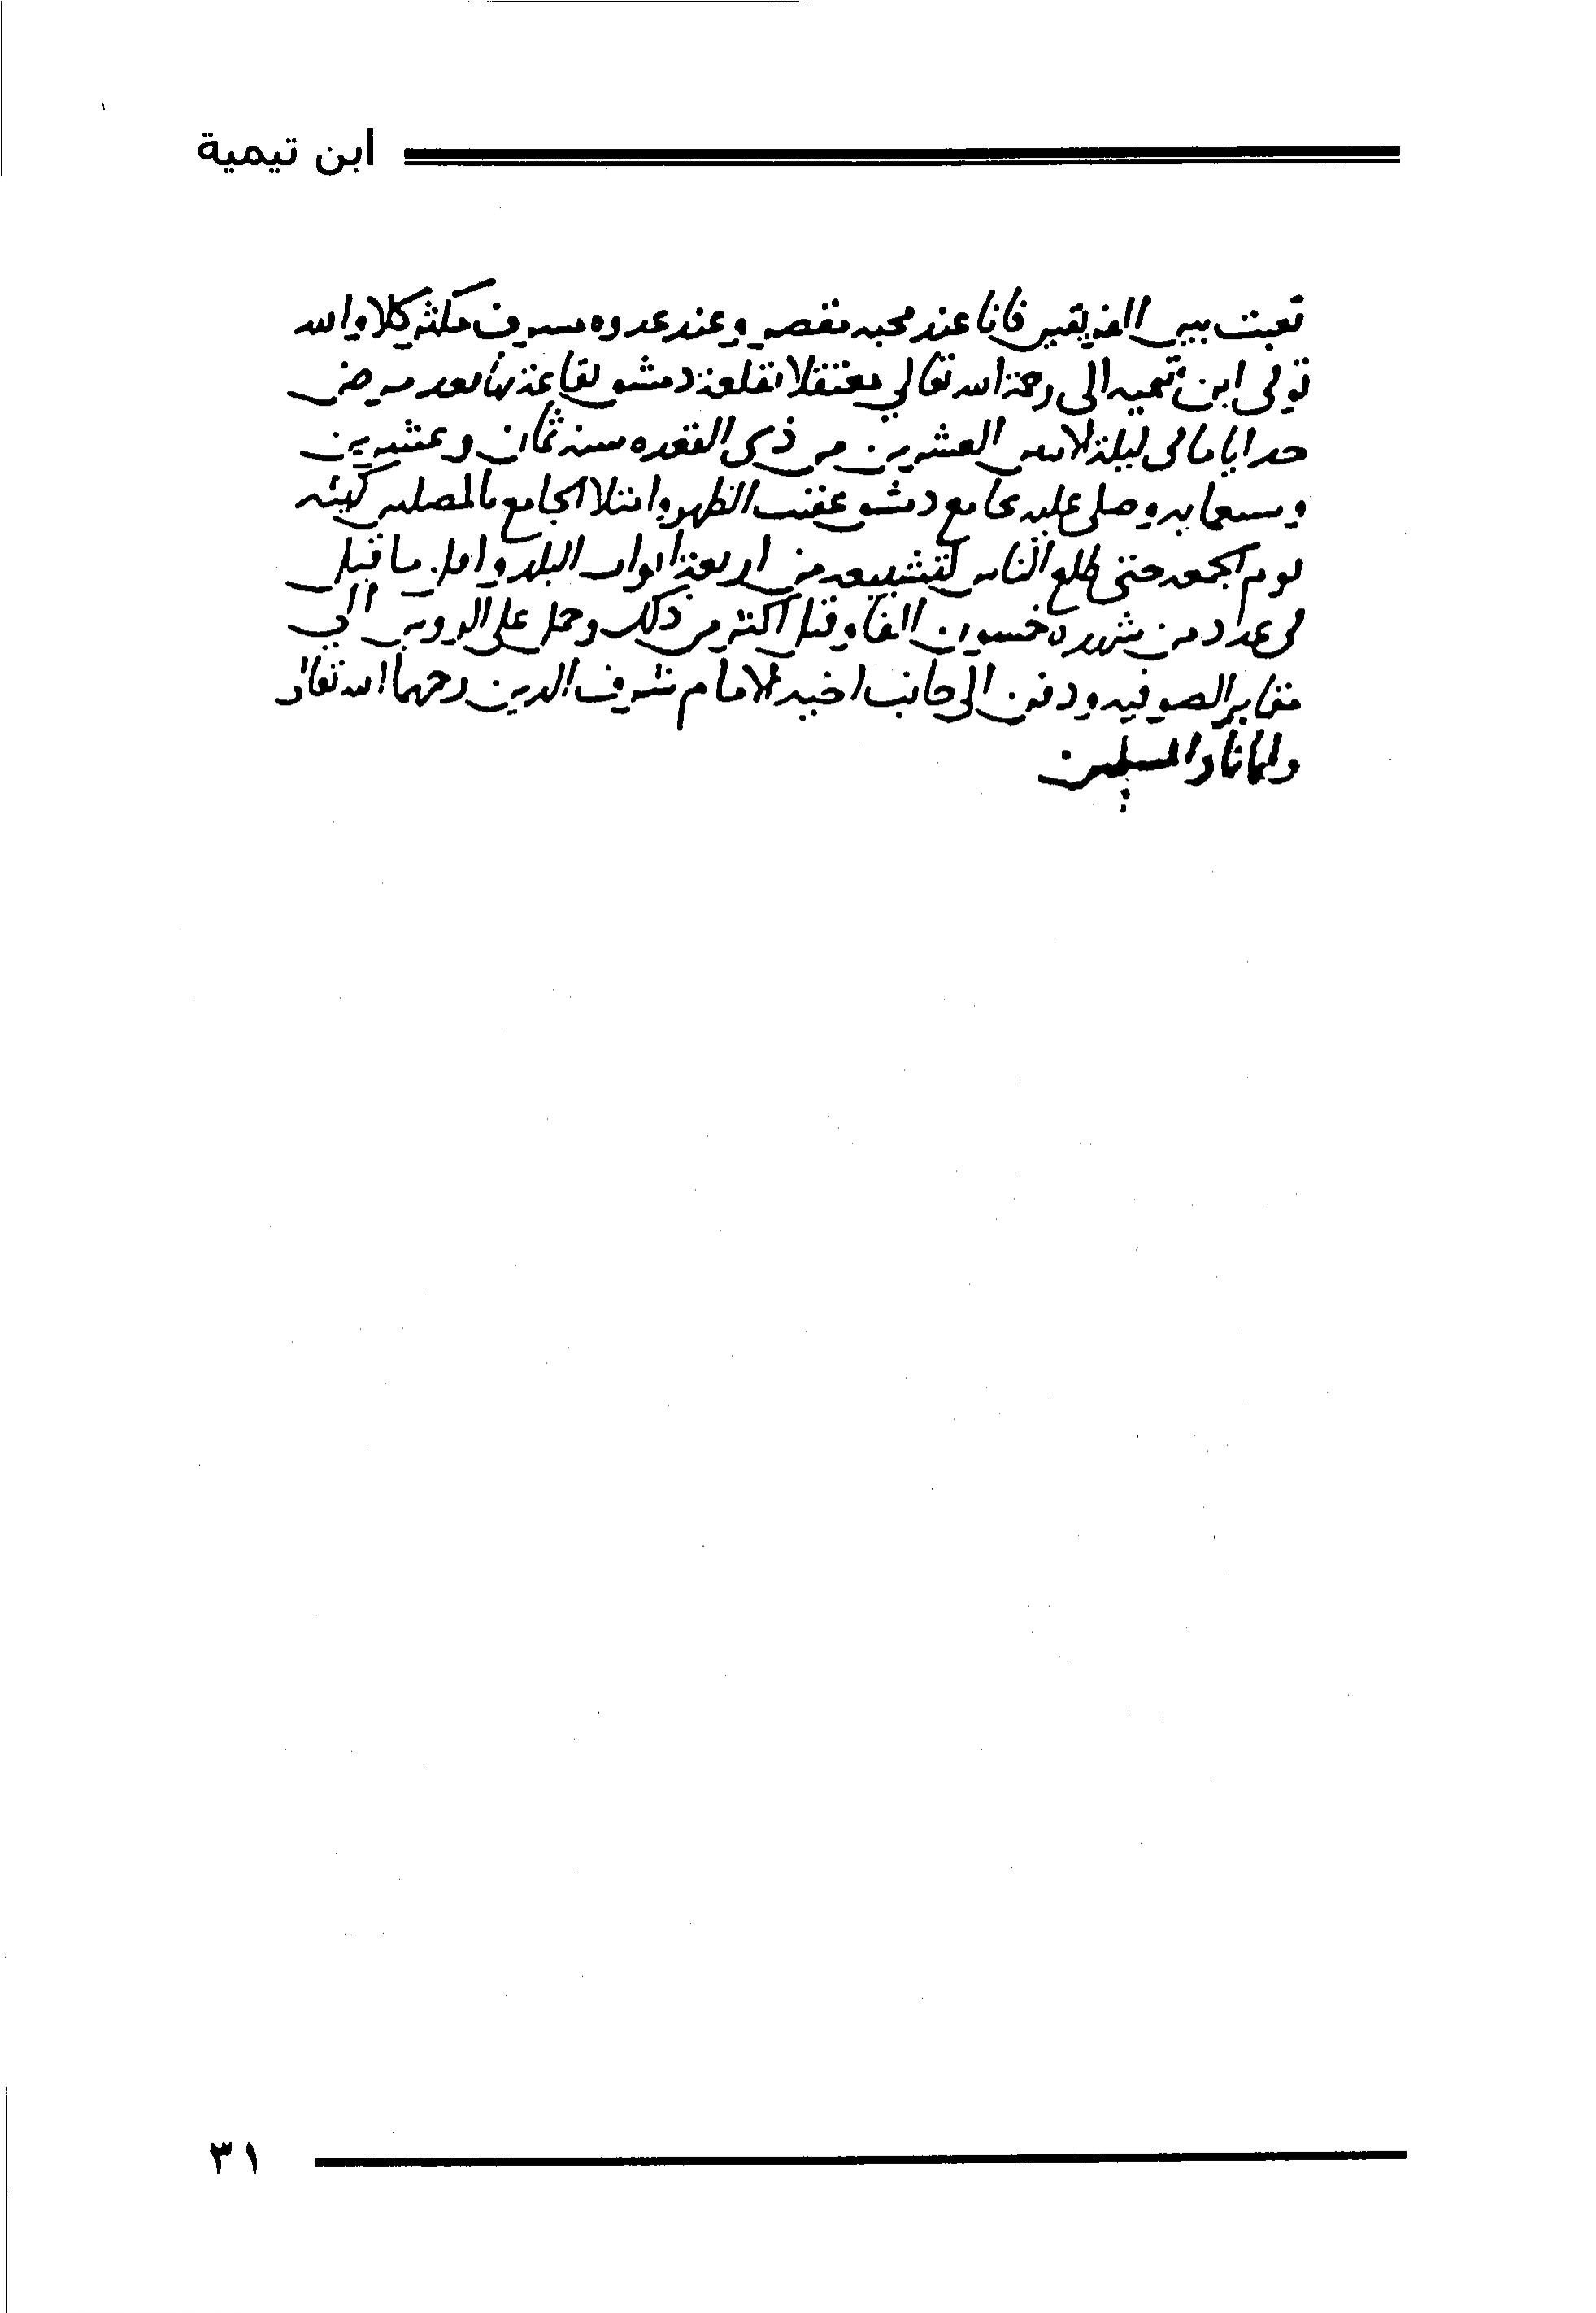 ابن تيمية
تعبت بين الفريقين فانا عند محبه مقصر وعند عدوه مسرف مكثر كلا والله
توفى ابن تيميه الى رحمة الله تعالى معتقلا بقلعة دمشق بقاعة بها بعد مرض
جد اياما فى ليلة الاثنين العشرين من ذى القعده سنه ثمان وعشرين
وسبعمايه وصلى عليه بجامع دمشق عقب الظهر وامتلا الجامع بالمصلين كهيئه
يوم الجمعه حتى طلع الناس لتشييعه من اربعة ابواب البلد واقل ما قيل
فى عدد من شهده خمسون الفا وقيل اكثر من ذلك وحمل على الروس الى
مقابر الصوفيه ودفن الى جانب اخيه الامام شرف الدين رحمهما الله تعالى
وايانا والمسلمين
٣١